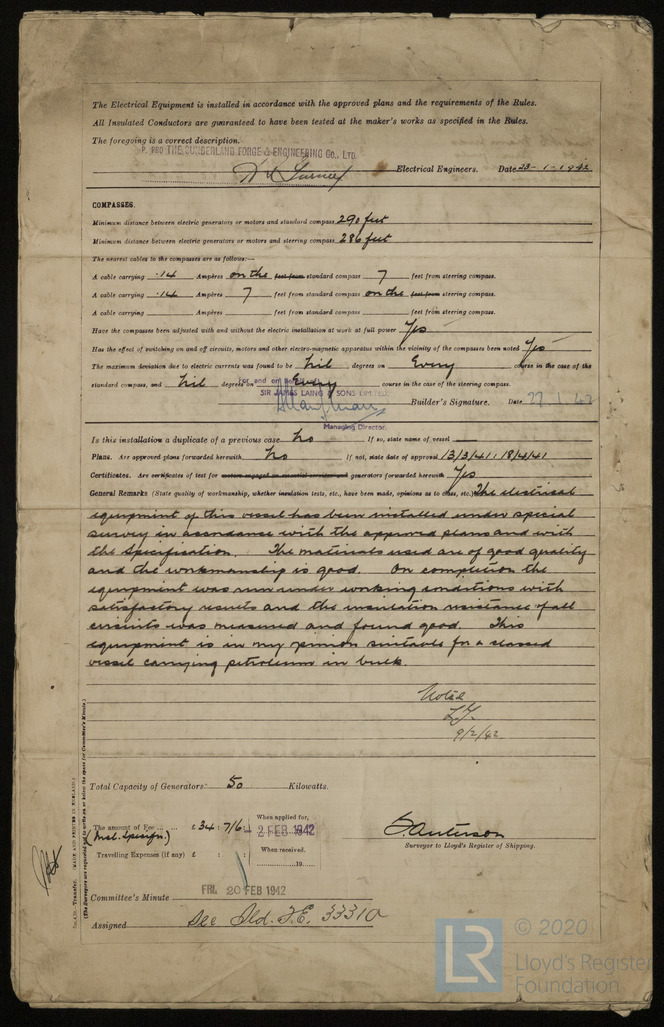 The Electrical Equipment is installed in accordance with the approved plans and the requirements of the Rules.
All Insulated Conductors are guaranteed to have been tested at the maker's works as specified in the Rules.
The foregoing is a correct description.
P. PRO THE SUNDERLAND FORGE & ENGINEERING CO., LTD.
Electrical Engineers. Date 23-1-1942
COMPASSES.
Minimum distance between electric generators or motors and standard compass 290 feet
Minimum distance between electric generators or motors and steering compass 286 feet
The nearest cables to the compasses are as follows:—
A cable carrying .14 Ampères on the feet from standard compass 7 feet from steering compass.
A cable carrying .14 Ampères 7 feet from standard compass on the feet from steering compass.
A cable carrying Ampères feet from standard compass feet from steering compass.
Have the compasses been adjusted with and without the electric installation at work at full power Yes
Has the effect of switching on and off circuits, motors and other electro-magnetic apparatus within the vicinity of the compasses been noted Yes
The maximum deviation due to electric currents was found to be Nil degrees on Every course in the case of the
standard compass, and Nil degrees on Every course in the case of the steering compass.
For and on behalf of
SIR JAMES LAING & SONS LIMITED.
Builder's Signature. Date 27.1.42
Managing Director.
Is this installation a duplicate of a previous case No If so, state name of vessel —
Plans. Are approved plans forwarded herewith No If not, state date of approval 13/3/41: 18/4/41
Certificates. Are certificates of test for motors engaged on essential services and generators forwarded herewith Yes
General Remarks (State quality of workmanship, whether insulation tests, etc., have been made, opinions as to class, etc.) The electrical
equipment of this vessel has been installed under special
survey in accordance with the approved plans and with
the Specification. The materials used are of good quality
and the workmanship is good. On completion the
equipment was run under working conditions with
satisfactory results and the insulation resistance of all
circuits was measured and found good. This
equipment is in my opinion suitable for a classed
vessel carrying petroleum in bulk.
Noted
9/2/42
Total Capacity of Generators 50 Kilowatts.
The amount of Fee ... ... £ 34 : 7/6 : When applied for,
2 FEB 1942
(Incl. Specifn.)
Travelling Expenses (if any) £ : : When received.
19
Surveyor to Lloyd's Register of Shipping.
Committee's Minute FRI. 20 FEB 1942
Assigned See Sld. F.E. 33310
(The Surveyors are requested not to write on or below the space for Committee's Minute.)
LR
© 2020
Lloyd's Register
Foundation